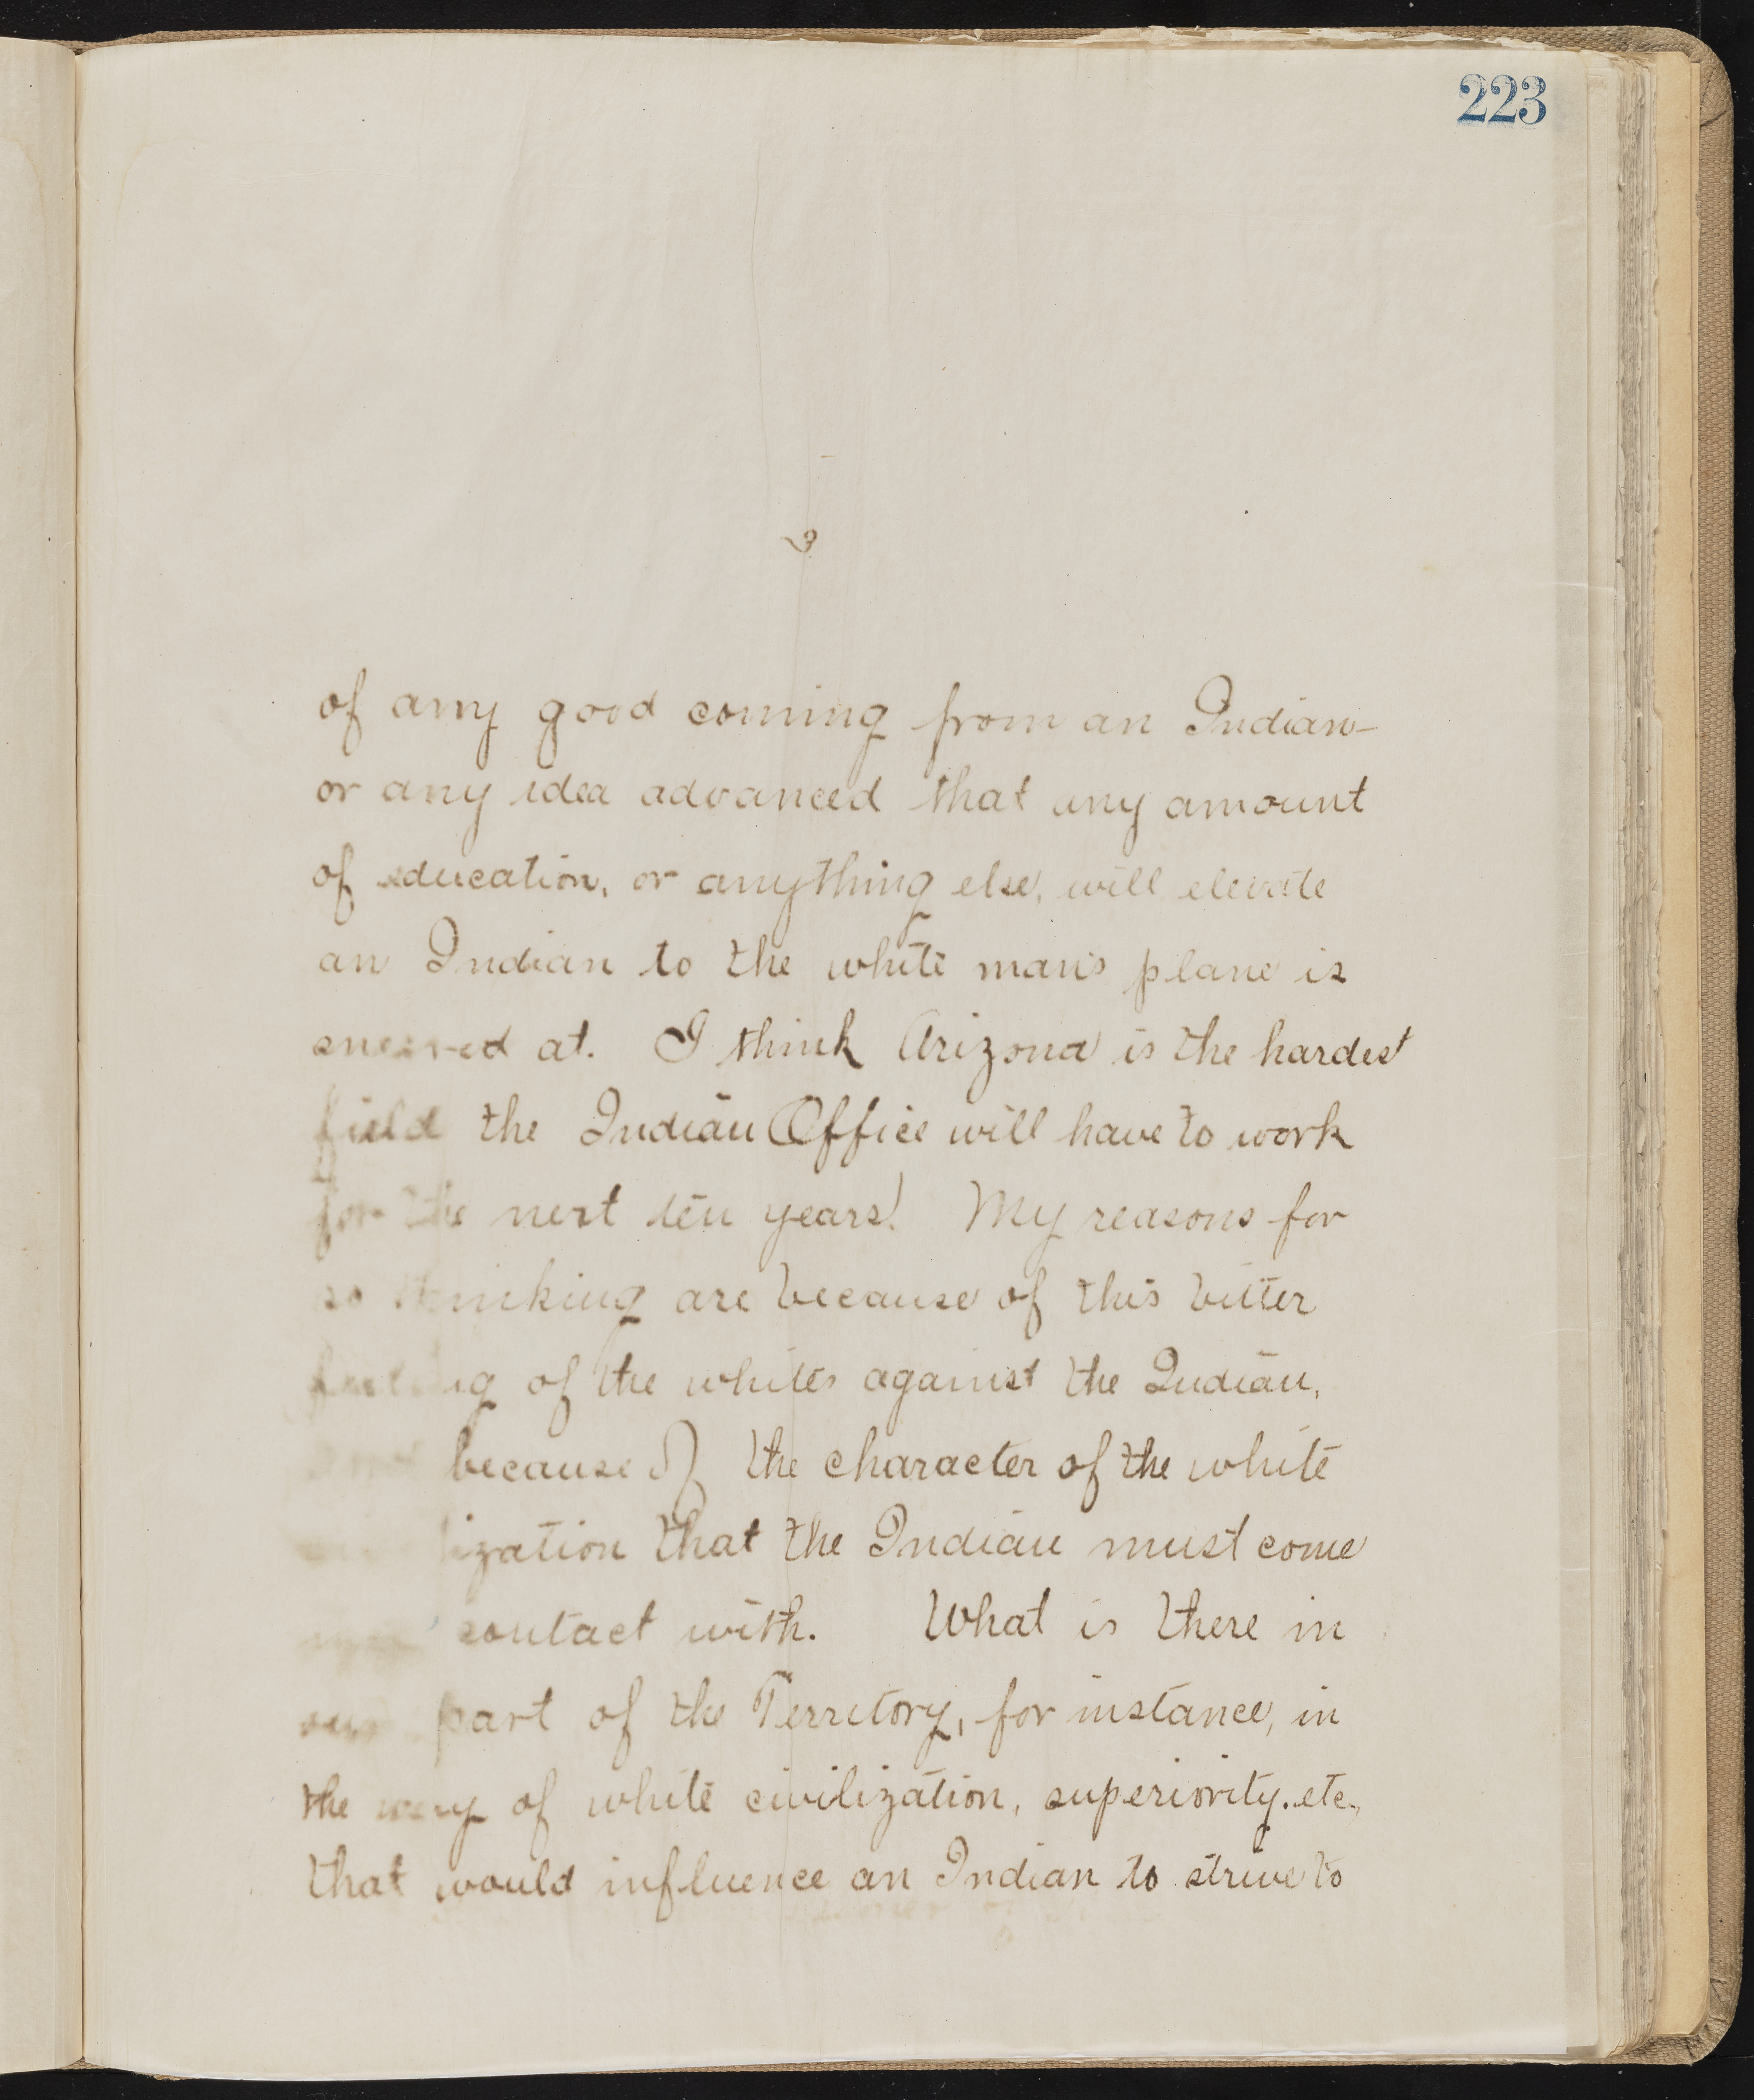 223
3
of any good coming from an Indian—
or any idea advanced that any amount
of education, or anything else, will elevate
an Indian to the white man's plane is
sneered at. I think Arizona is the hardest
field the Indian Office will have to work
for the next ten years! My reasons for
so thinking are because of this bitter
feeling of the whites against the Indian,
because of the character of the white
civilization that the Indian must come
contact with. What is there in
our part of the Territory, for instance, in
the way of white civilization, superiority. etc.,
that would influence an Indian to strive to